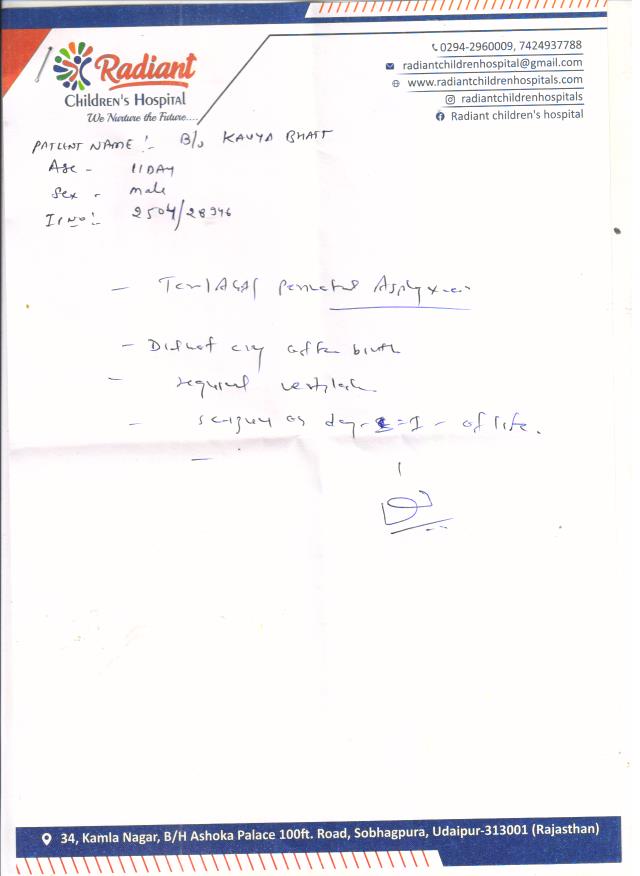 Radiant
CHILDREN'S HOSPITAL
We Nurture the Future....
0294-2960009, 7424937788
radiantchildrenhospital@gmail.com
www.radiantchildrenhospitals.com
radiantchildrenhospitals
Radiant children's hospital
PATIENT NAME :- B/o KAVYA BHATT
Age - 11 DAY
Sex - male
IP NO :- 2504/28946
- Term/AGA/ perinatal Asphyxia
- Did not cry after birth
- required
- seizure on day - 1 - of life.
34, Kamla Nagar, B/H Ashoka Palace 100ft. Road, Sobhagpura, Udaipur-313001 (Rajasthan)